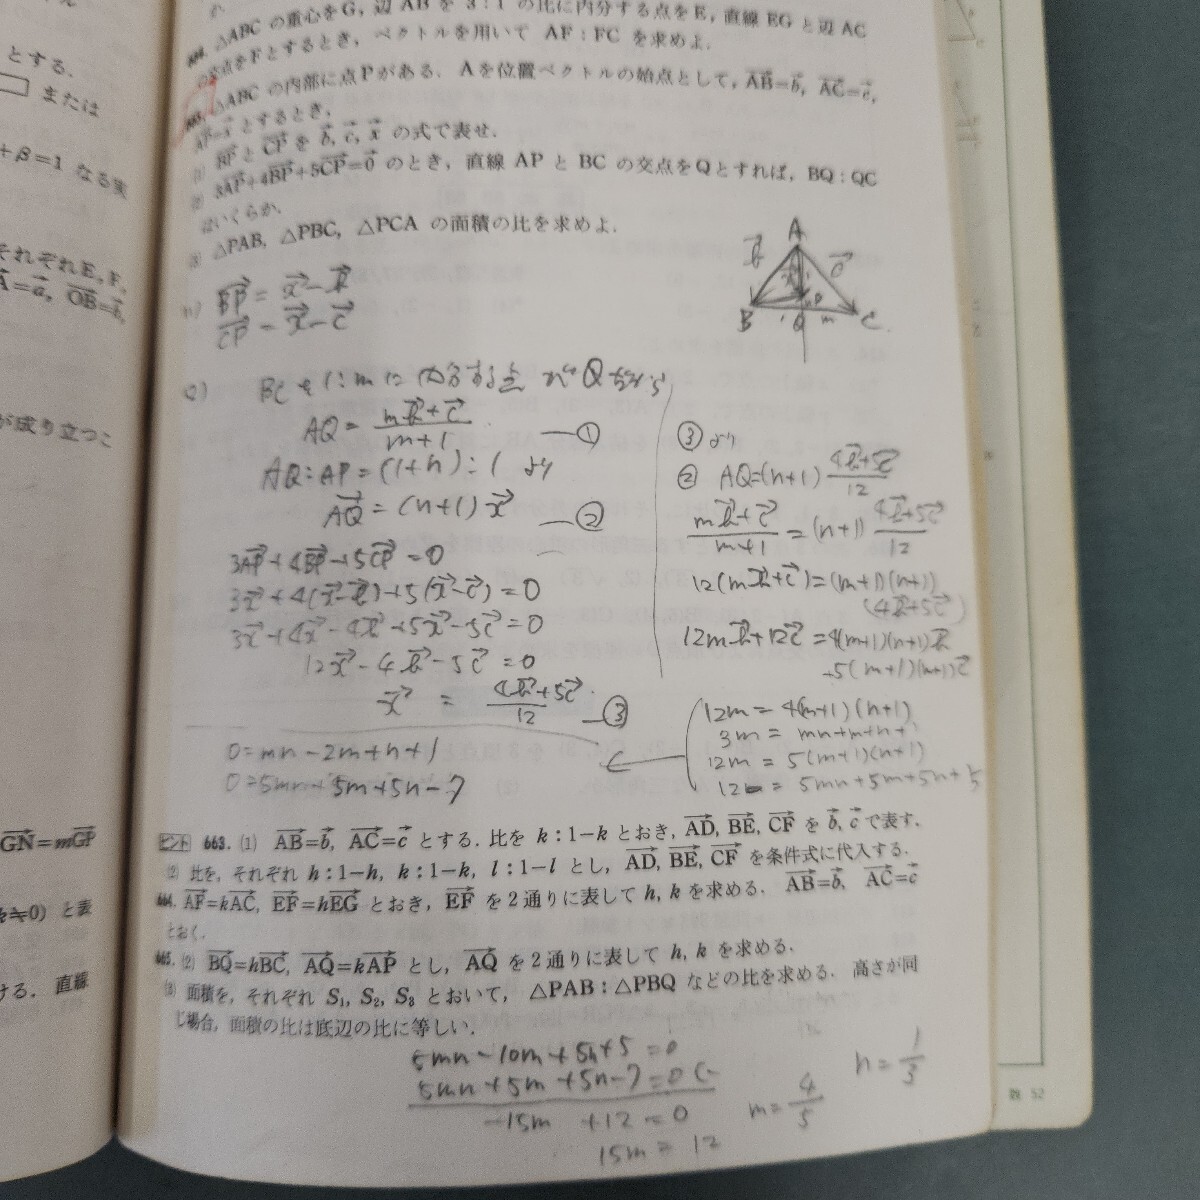 か.
664. △ABC の重心をG, 辺 AB を 3:1 の比に内分する点をE, 直線 EG と辺 AC
の交点をFとするとき, ベクトルを用いて AF:FC を求めよ.
665. △ABC の内部に点Pがある. Aを位置ベクトルの始点として, AB=b, AC=c,
AP=x とするとき,
(1) BPとCPを b, c, x の式で表せ.
(2) 3AP+4BP+5CP=0 のとき, 直線 AP と BC の交点をQとすれば, BQ:QC
はいくらか.
(3) △PAB, △PBC, △PCA の面積の比を求めよ.
A
b
c
P
B
1
Q
m
C
(1) BP = x - b
CP = x - c
(2) BC を 1:m に内分する点 が Q だから
AQ = mb+c / m+1 —①
AQ:AP = (1+n):1 より
AQ = (n+1)x —②
3AP+4BP+5CP=0
3x+4(x-b)+5(x-c)=0
3x+4x-4b+5x-5c=0
12x-4b-5c=0
x = 4b+5c / 12 —③
0=mn-2m+n+1
0=5mn+5m+5n-7
③より
② AQ=(n+1) 4b+5c / 12
mb+c / m+1 = (n+1) 4b+5c / 12
12(mb+c)=(m+1)(n+1)
(4b+5c)
12mb+12c=4(m+1)(n+1)b
+5(m+1)(n+1)c
12m=4(m+1)(n+1)
3m = mn+m+n+1
12m = 5(m+1)(n+1)
12 = 5mn+5m+5n+5
ヒント 663. (1) AB=b, AC=c とする. 比を k:1-k とおき, AD, BE, CF を b, c で表す.
(2) 比を, それぞれ h:1-h, k:1-k, l:1-l とし, AD, BE, CF を条件式に代入する.
664. AF=kAC, EF=hEG とおき, EF を2通りに表して h, k を求める. AB=b, AC=c
とおく.
665. (2) BQ=hBC, AQ=kAP とし, AQ を2通りに表して h, k を求める.
(3) 面積を, それぞれ S1, S2, S3 とおいて, △PAB:△PBQ などの比を求める. 高さが同
じ場合, 面積の比は底辺の比に等しい.
5mn-10m+5n+5=0
5mn+5m+5n-7=0 (-
-15m +12=0
15m = 12
m=4/5
n=1/3
とする.
または
+β=1 なる実
それぞれE, F,
A=a, OB=b,
が成り立つこ
GN=mGP
k≒0) と表
ける. 直線
数 52